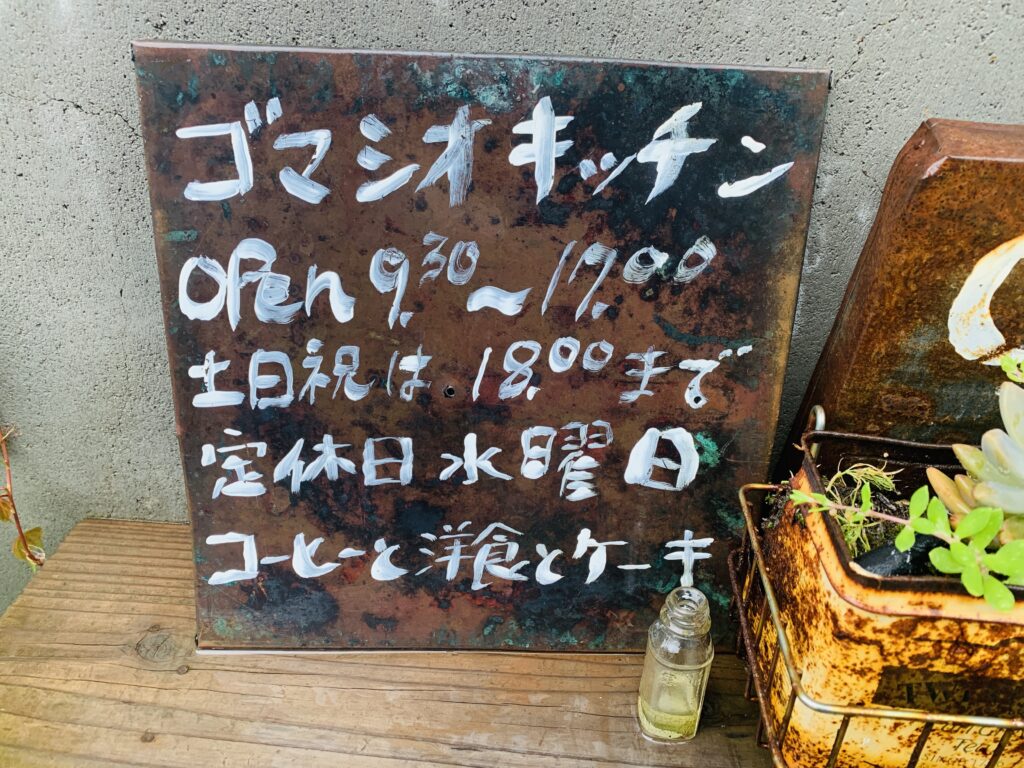 ゴマシオキッチン
OPen 9.30～17.00
土日祝は 18.00まで
定休日 水曜日
コーヒーと洋食とケーキ